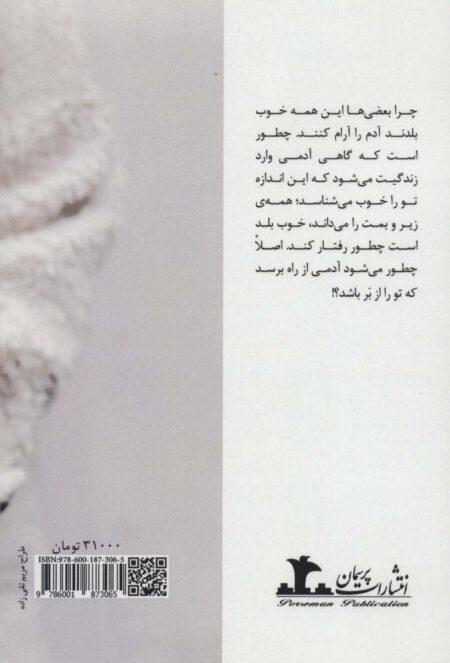 چرا بعضی‌ها این همه خوب
بلدند آدم را آرام کنند. چطور
است که گاهی آدمی وارد
زندگیت می‌شود که این اندازه
تو را خوب می‌شناسد؛ همه‌ی
زیر و بمت را می‌داند، خوب بلد
است چطور رفتار کند. اصلاً
چطور می‌شود آدمی از راه برسد
که تو را از بَر باشد؟!
۳۱۰۰۰ تومان
ISBN:978-600-187-306-5
9 786001 873065
طراح: مریم تقی زاده
انتشارات پریمان
Porseman Publication